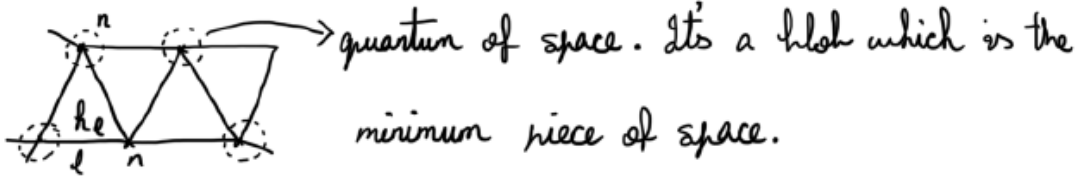 n
quantum of space. It's a blob which is the
h_e
minimum piece of space.
l n